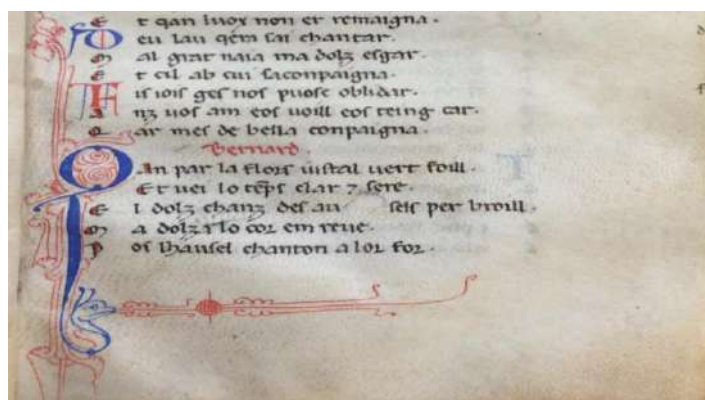 E t qan luox non er remaigna.
D eu lau qém sai chantar.
M al grat naia ma dolz esgar.
E t cil ab cui saconpaigna.
F is iois ges nos puosc oblidar.
A nz uos am eos uoill eos teing car.
Q ar mes de bella conpaigna.
Bernard.
Q an par la flors iustal uert foill.
E t uei lo tẽps clar ⁊ sere.
E l dolz chanz des au sels per broill.
M a dolzi lo cor em reue.
P os lhausel chanton a lor for.